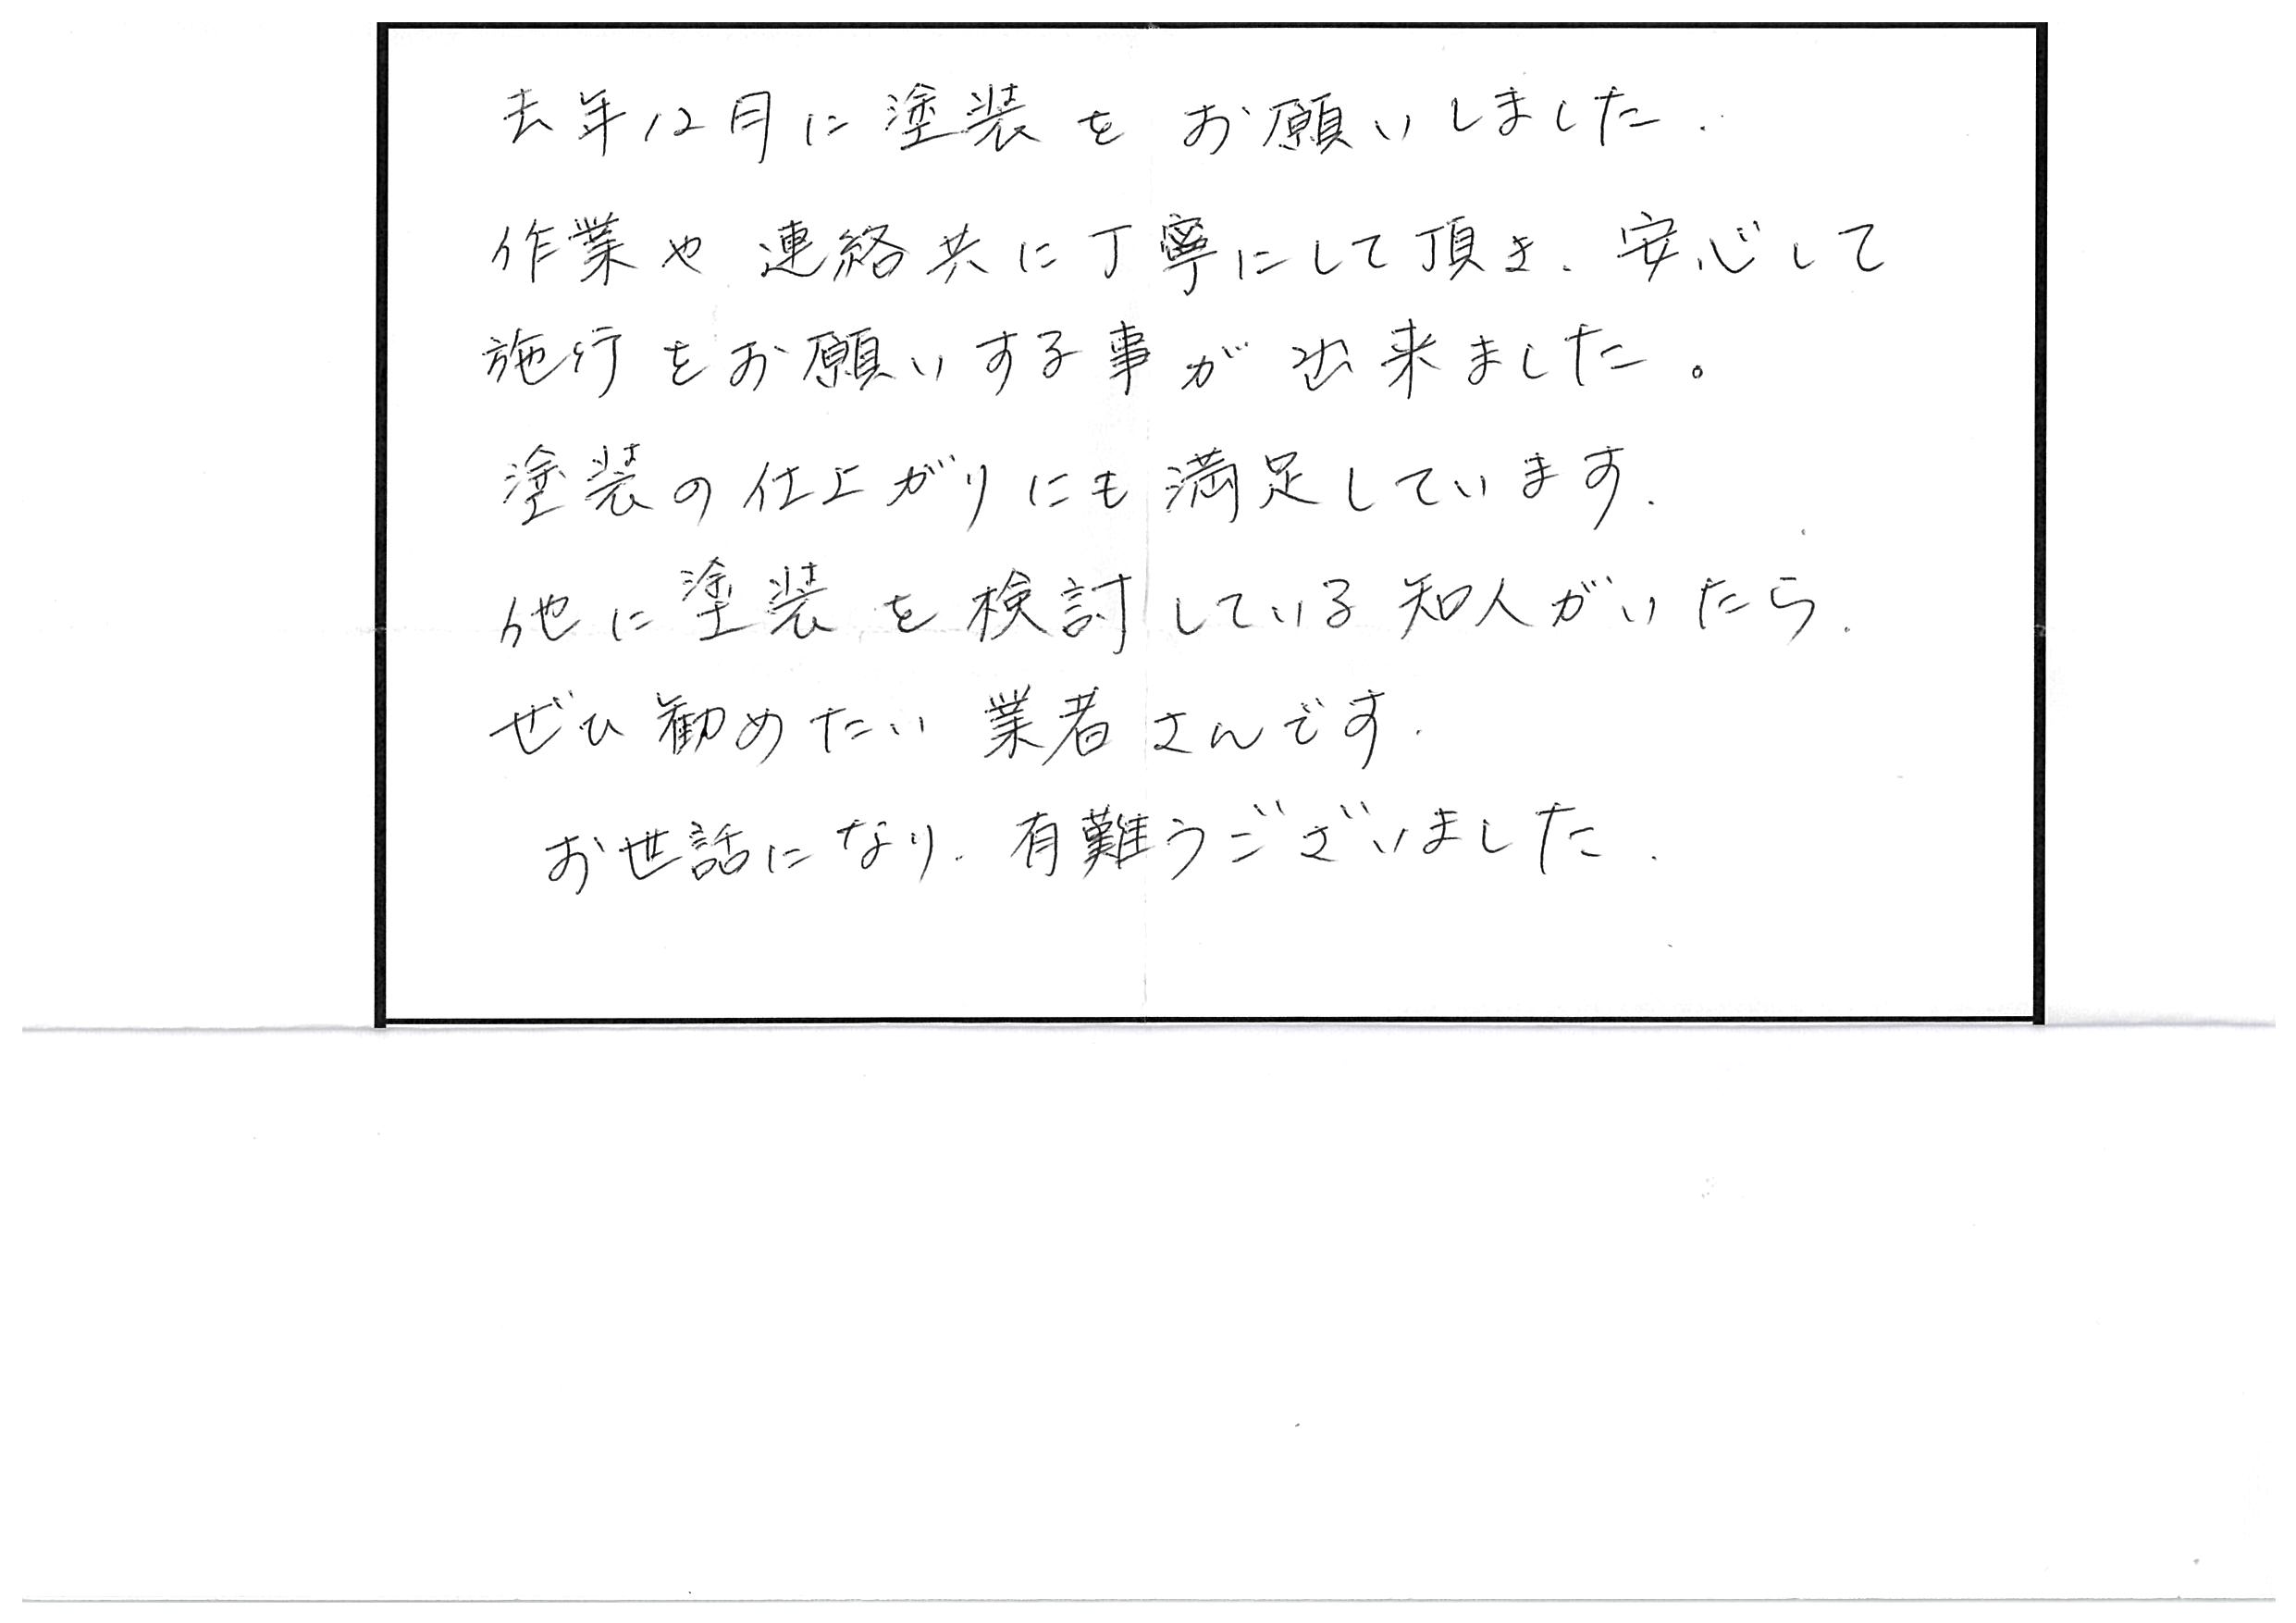 去年12月に塗装をお願いしました.
作業や連絡共に丁寧にして頂き、安心して
施行をお願いする事が出来ました。
塗装の仕上がりにも満足しています.
他に塗装を検討している知人がいたら.
ぜひ勧めたい業者さんです.
お世話になり.有難うございました.